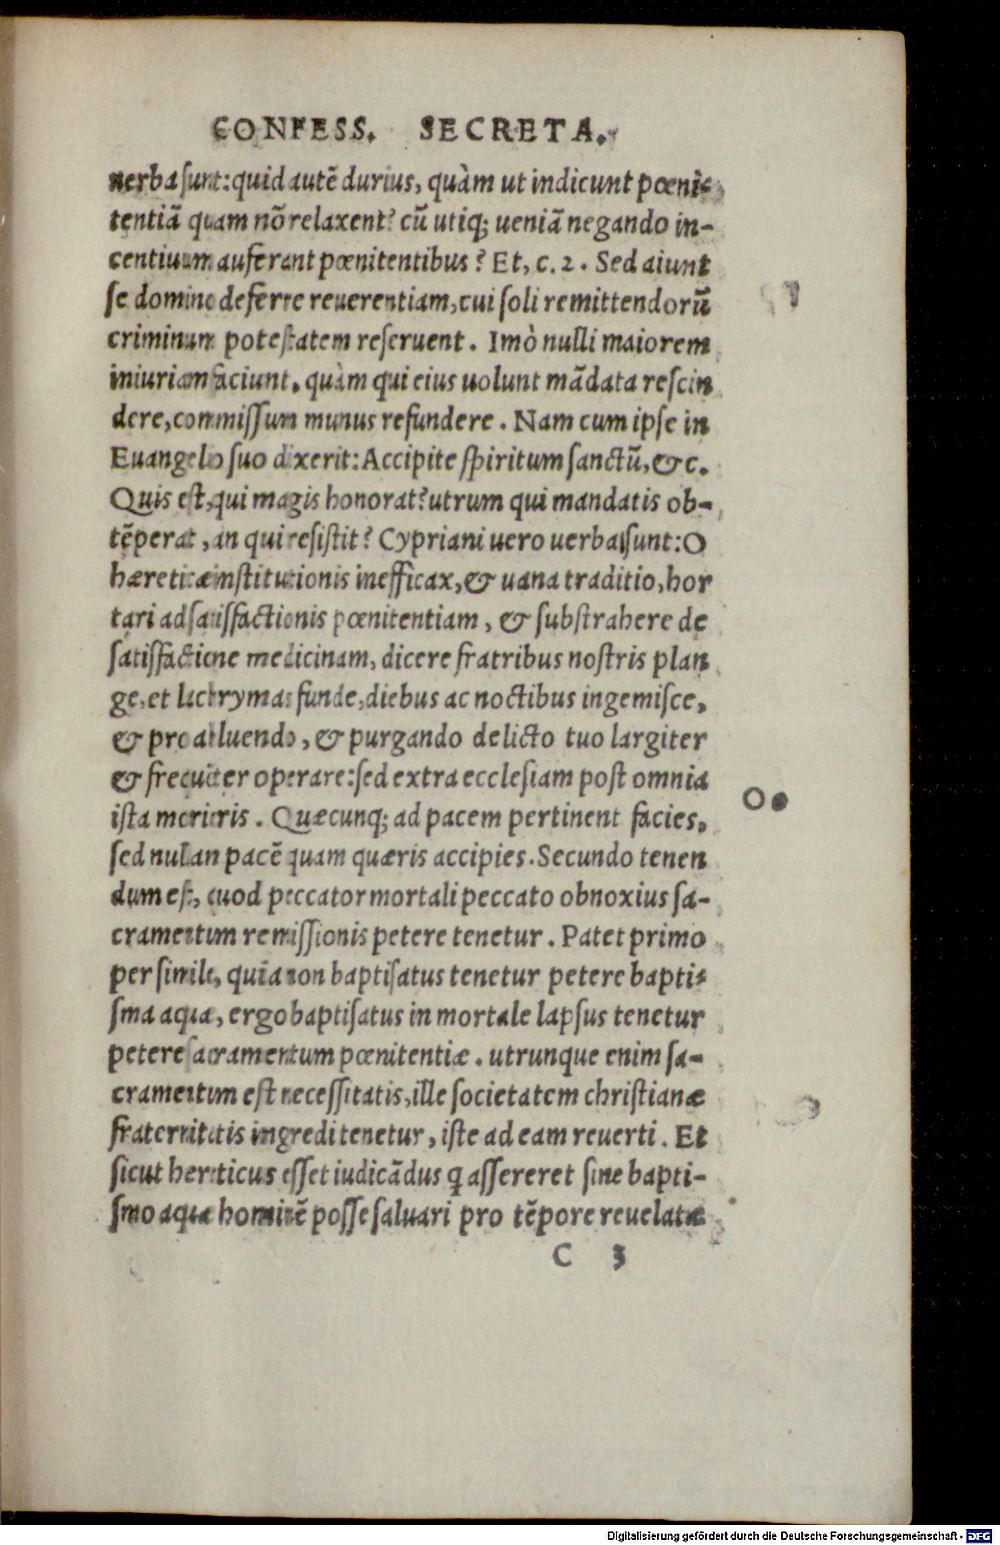 CONFESS. SECRETA.
uerba sunt: quid autē durius, quàm ut indicunt pœni-
tentiã quam nõ relaxent? cũ utiq; ueniã negando in-
centiuum auferant pœnitentibus? Et, c. 2. Sed aiunt
se domino deferre reuerentiam, cui soli remittendorũ
criminum potestatem reseruent. Imò nulli maiorem
iniuriam faciunt, quàm qui eius uolunt mãdata rescin
dere, commissum munus refundere. Nam cum ipse in
Euangelio suo dixerit: Accipite spiritum sanctũ, &c.
Quis est, qui magis honorat? utrum qui mandatis ob-
tẽperat, an qui resistit? Cypriani uero uerba sunt: O
hæreticæ institutionis inefficax, & uana traditio, hor
tari ad satisfactionis pœnitentiam, & substrahere de
satisfactione medicinam, dicere fratribus nostris plan
ge, et lachrymas funde, diebus ac noctibus ingemisce,
& pro abluendo, & purgando delicto tuo largiter
& frequẽter operare: sed extra ecclesiam post omnia
ista morieris. Quæcunq; ad pacem pertinent facies,
sed nullan pacẽ quam quæris accipies. Secundo tenen
dum est, quod peccator mortali peccato obnoxius sa-
cramentum remissionis petere tenetur. Patet primo
per simile, quia non baptisatus tenetur petere bapti-
sma aquæ, ergo baptisatus in mortale lapsus tenetur
petere sacramentum pœnitentiæ. utrunque enim sa-
cramentum est necessitatis, ille societatem christianæ
fraternitatis ingredi tenetur, iste ad eam reuerti. Et
sicut hereticus esset iudicãdus q assereret sine bapti-
smo aquæ hominẽ posse saluari pro tẽpore reuelatæ
C 3
Digitalisierung gefördert durch die Deutsche Forschungsgemeinschaft - DFG